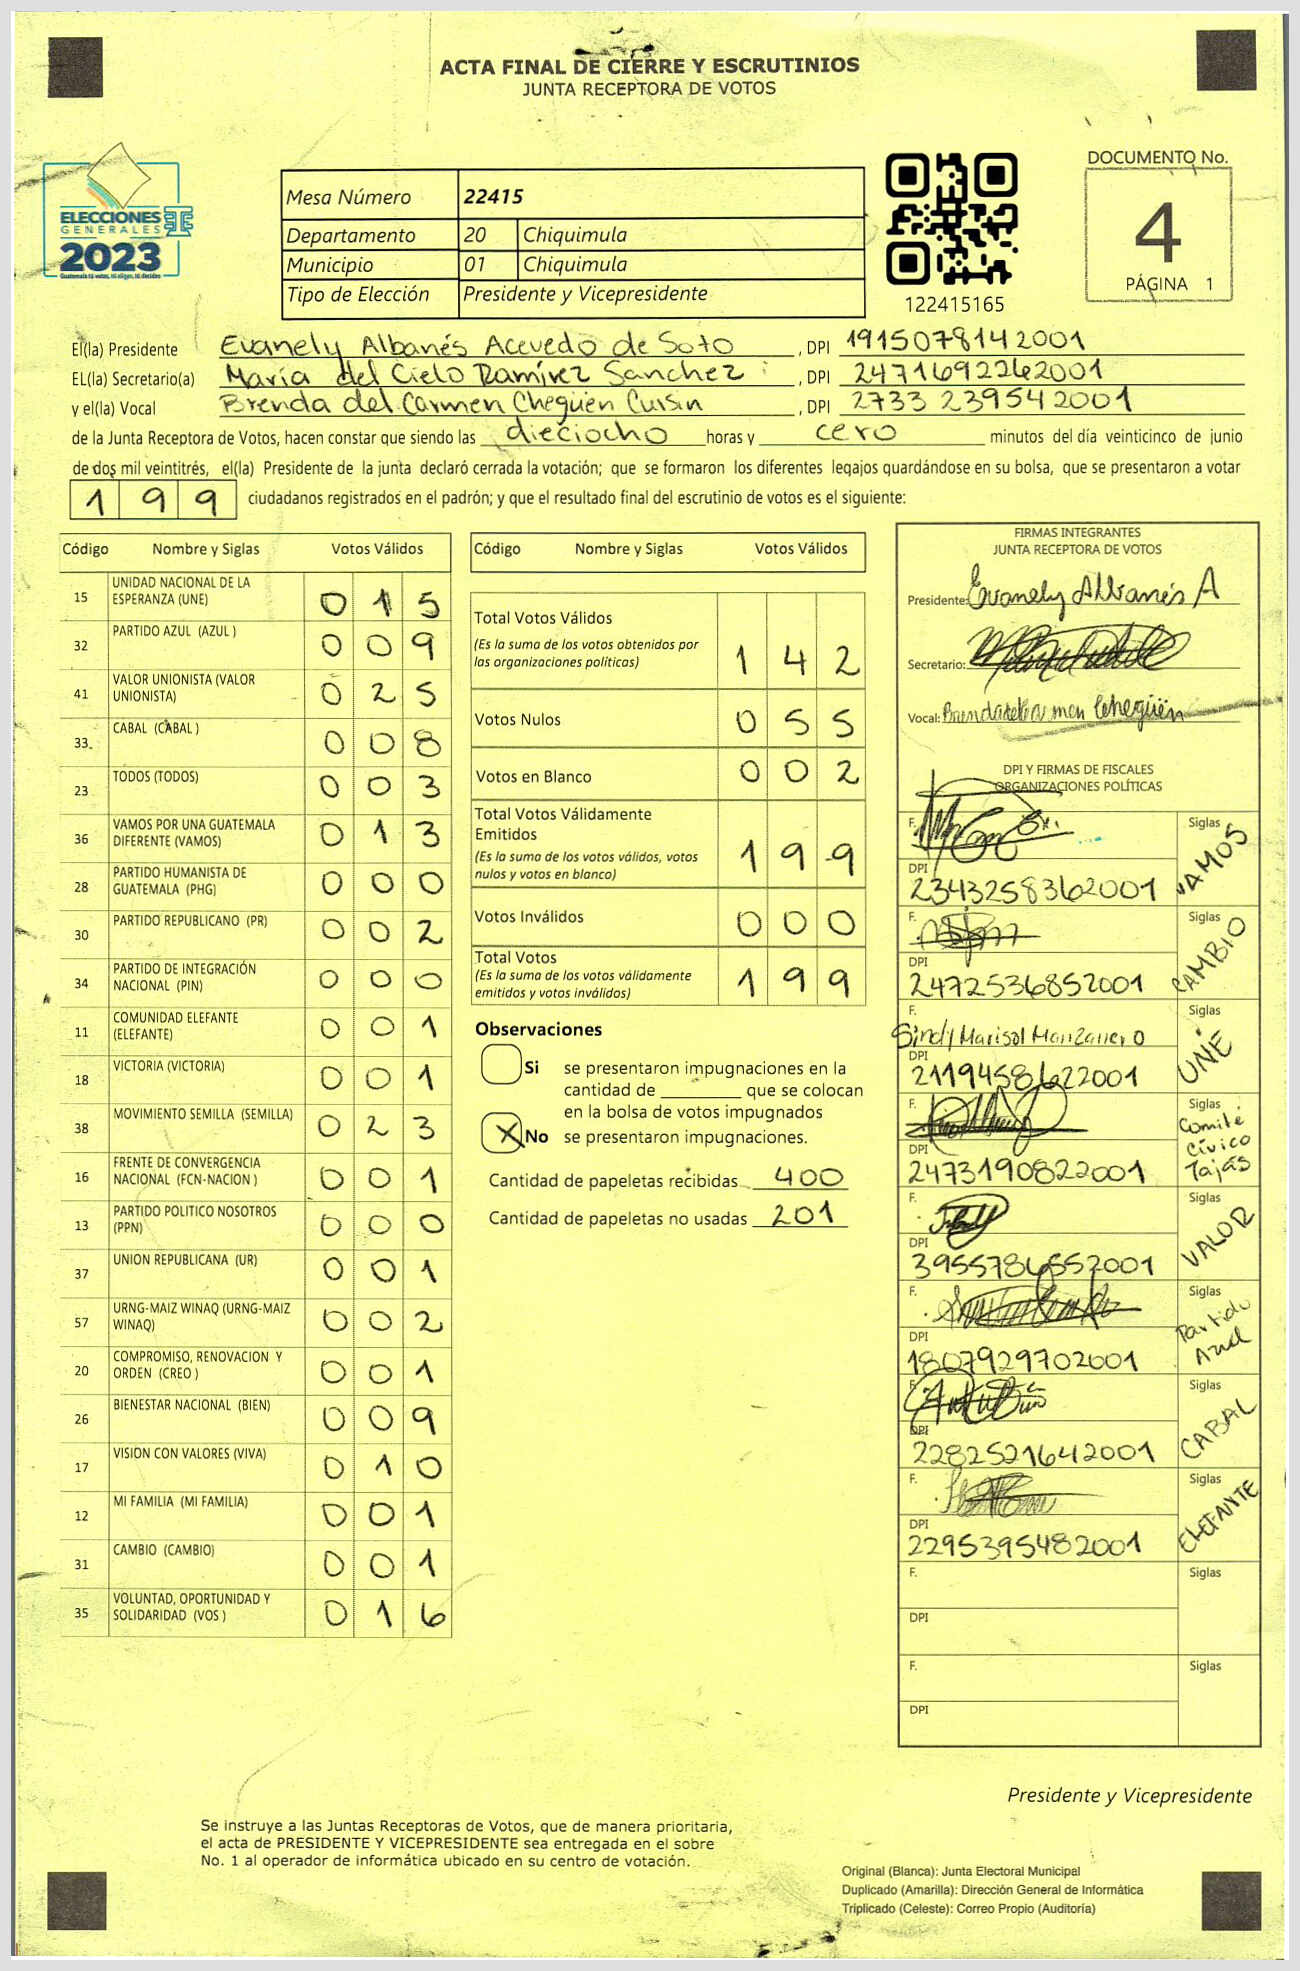 ACTA FINAL DE CIERRE Y ESCRUTINIOS
JUNTA RECEPTORA DE VOTOS
ELECCIONES
GENERALES
2023
Mesa Número 22415
Departamento 20 Chiquimula
Municipio 01 Chiquimula
Tipo de Elección Presidente y Vicepresidente
122415165
DOCUMENTO No.
4
PÁGINA 1
El(la) Presidente Evanely Albanés Acevedo de Soto , DPI 1915078142001
EL(la) Secretario(a) María del Cielo Ramírez Sanchez , DPI 2471692262001
y el(la) Vocal Brenda del Carmen Chegüen Cursin , DPI 2733 239542001
de la Junta Receptora de Votos, hacen constar que siendo las dieciocho horas y cero minutos del día veinticinco de junio
de dos mil veintitrés, el(la) Presidente de la junta declaró cerrada la votación; que se formaron los diferentes legajos guardándose en su bolsa, que se presentaron a votar
199 ciudadanos registrados en el padrón; y que el resultado final del escrutinio de votos es el siguiente:
Código Nombre y Siglas Votos Válidos
15 UNIDAD NACIONAL DE LA ESPERANZA (UNE) 015
32 PARTIDO AZUL (AZUL ) 009
41 VALOR UNIONISTA (VALOR UNIONISTA) 025
33 CABAL (CABAL ) 008
23 TODOS (TODOS) 003
36 VAMOS POR UNA GUATEMALA DIFERENTE (VAMOS) 013
28 PARTIDO HUMANISTA DE GUATEMALA (PHG) 000
30 PARTIDO REPUBLICANO (PR) 002
34 PARTIDO DE INTEGRACIÓN NACIONAL (PIN) 000
11 COMUNIDAD ELEFANTE (ELEFANTE) 001
18 VICTORIA (VICTORIA) 001
38 MOVIMIENTO SEMILLA (SEMILLA) 023
16 FRENTE DE CONVERGENCIA NACIONAL (FCN-NACION ) 001
13 PARTIDO POLITICO NOSOTROS (PPN) 000
37 UNION REPUBLICANA (UR) 001
57 URNG-MAIZ WINAQ (URNG-MAIZ WINAQ) 002
20 COMPROMISO, RENOVACION Y ORDEN (CREO ) 001
26 BIENESTAR NACIONAL (BIEN) 009
17 VISION CON VALORES (VIVA) 010
12 MI FAMILIA (MI FAMILIA) 001
31 CAMBIO (CAMBIO) 001
35 VOLUNTAD, OPORTUNIDAD Y SOLIDARIDAD (VOS ) 016
Código Nombre y Siglas Votos Válidos
Total Votos Válidos 142
(Es la suma de los votos obtenidos por
las organizaciones políticas)
Votos Nulos 055
Votos en Blanco 002
Total Votos Válidamente
Emitidos 199
(Es la suma de los votos válidos, votos
nulos y votos en blanco)
Votos Inválidos 000
Total Votos 199
(Es la suma de los votos válidamente
emitidos y votos inválidos)
Observaciones
Si se presentaron impugnaciones en la
cantidad de ________ que se colocan
en la bolsa de votos impugnados
X No se presentaron impugnaciones.
Cantidad de papeletas recibidas 400
Cantidad de papeletas no usadas 201
FIRMAS INTEGRANTES
JUNTA RECEPTORA DE VOTOS
Presidente: Evanely Albanés A
Secretario:
Vocal: Brenda del Carmen Chegüén
DPI Y FIRMAS DE FISCALES
ORGANIZACIONES POLÍTICAS
F. Siglas VAMOS
DPI 2343258362001
F. Siglas CAMBIO
DPI 2472536852001
F. Sindy Marisol Manzanero Siglas UNE
DPI 2119458622001
F. Siglas Comité Cívico Tajás
DPI 2473190822001
F. Siglas VALOR
DPI 3955786552001
F. Siglas Partido Azul
DPI 1807929702001
F. Siglas CABAL
DPI 2282521642001
F. Siglas ELEFANTE
DPI 2295395482001
F. Siglas
DPI
F. Siglas
DPI
Presidente y Vicepresidente
Se instruye a las Juntas Receptoras de Votos, que de manera prioritaria,
el acta de PRESIDENTE Y VICEPRESIDENTE sea entregada en el sobre
No. 1 al operador de informática ubicado en su centro de votación.
Original (Blanca): Junta Electoral Municipal
Duplicado (Amarilla): Dirección General de Informática
Triplicado (Celeste): Correo Propio (Auditoría)